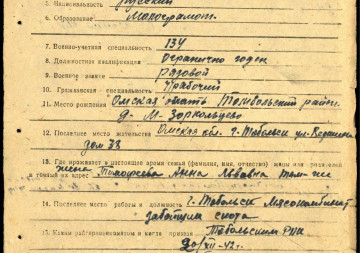 5. Национальность русский
6. Образование Малограмот.
7. Военно-учетная специальность 134
8. Должностная квалификация ограничено годен
9. Военное звание рядовой
10. Гражданская специальность Рабочий
11. Место рождения Омская область Тобольский район
д. М-Зоркольцево
12. Последнее место жительства Омская обл. г-Тобольск ул-
дом 38
13. Где проживает в настоящее время семья (фамилия, имя, отчество) жены или родителей
и точный их адрес жена Тимофеева Анна Львовна там-же
14. Последнее место работы и должность г. Тобольск Мясокомбинат
забойщик скота
15. Каким райгорвоенкоматом и когда призван Тобольским РВК
20/XII-42г.